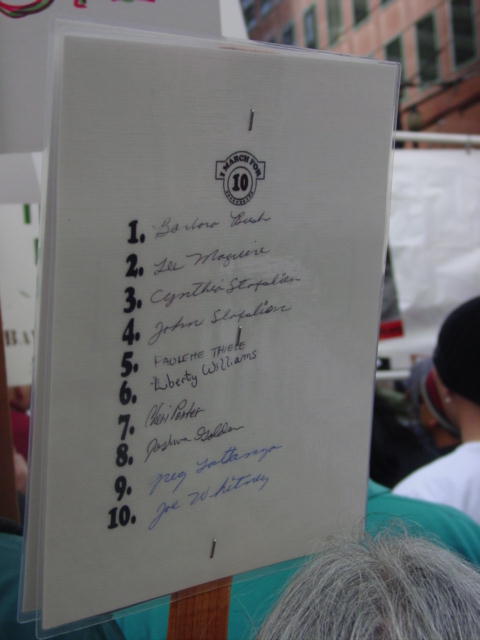 I MARCH FOR
10
1. Barbara Bush
2. Lee Maguire
3. Cynthia Stapalian
4. John Stapalian
5. PAULETTE THIELE
6. Liberty Williams
7. Cheri Porter
8. Joshua Golden
9. Peg Lattanzo
10. Joe Whitney